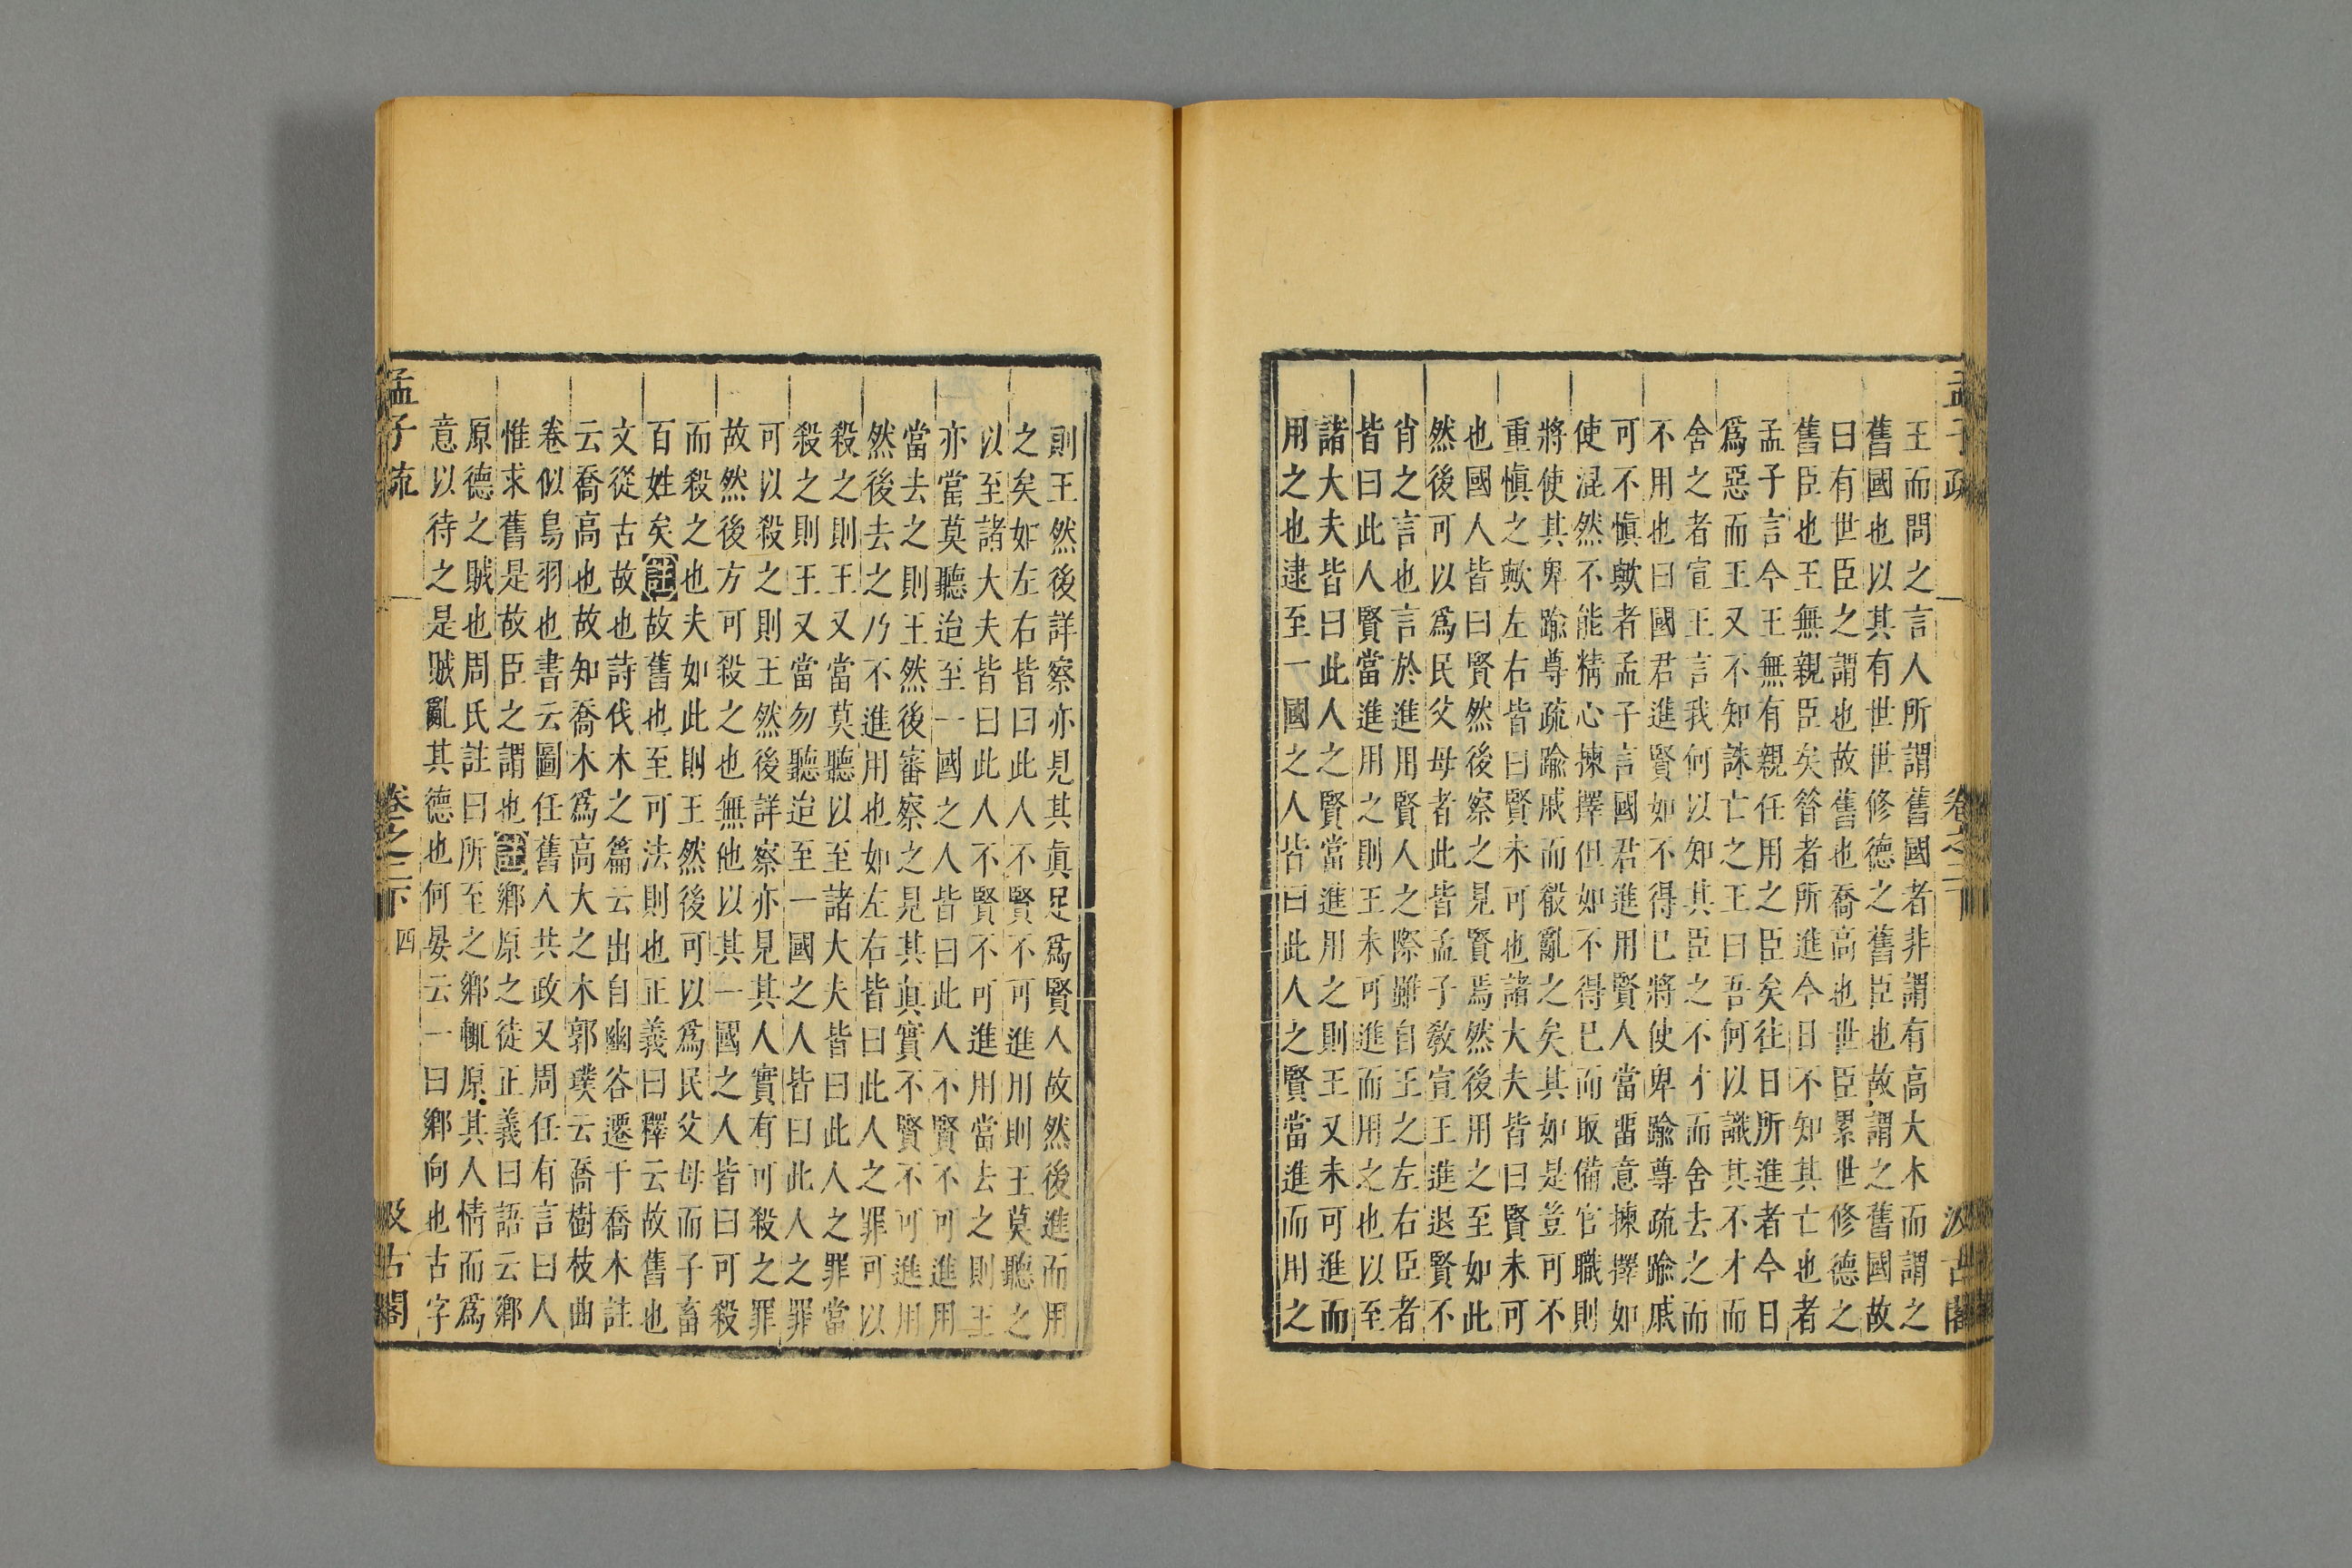 王而問之言人所謂舊國者非謂有高大木而謂之
舊國也以其有世世修德之舊臣也故謂之舊國故
曰有世臣之謂也故舊也喬高也世臣累世修德之
舊臣也王無親臣矣昝者所進今日不知其亡也者
孟子言今王無有親任用之臣矣往日所進者今日
爲惡而王又不知誅亡之王曰吾何以識其不才而
舍之者宣王言我何以知其臣之不才而舍去之而
不用也曰國君進賢如不得已將使卑踰尊疏踰戚
可不愼歟者孟子言國君進用賢人當畱意揀擇如
使混然不能精心揀擇但如不得已而取備官職則
將使其卑踰尊疏踰戚而殽亂之矣其如是豈可不
重愼之歟左右皆曰賢未可也諸大夫皆曰賢未可
也國人皆曰賢然後察之見賢焉然後用之至如此
然後可以爲民父母者此皆孟子敎宣王進退賢不
肖之言也言於進用賢人之際雖自王之左右臣者
皆曰此人賢當進用之則王未可進而用之也以至
諸大夫皆曰此人之賢當進用之則王又未可進而
用之也逮至一國之人皆曰此人之賢當進而用之
孟子疏
卷之二下
汲古閣
則王然後詳察亦見其眞足爲賢人故然後進而用
之矣如左右皆曰此人不賢不可進用則王莫聽之
以至諸大夫皆曰此人不賢不可進用當去之則王
亦當莫聽迨至一國之人皆曰此人不賢不可進用
當去之則王然後審察之見其眞實不賢不可進用
然後去之乃不進用也如左右皆曰此人之罪可以
殺之則王又當莫聽以至諸大夫皆曰此人之罪當
殺之則王又當勿聽迨至一國之人皆曰此人之罪
可以殺之則王然後詳察亦見其人實有可殺之罪
故然後方可殺之也無他以其一國之人皆曰可殺
而殺之也夫如此則王然後可以爲民父母而子畜
百姓矣註故舊也至可法則也正義曰釋云故舊也
文從古故也詩伐木之篇云出自幽谷遷于喬木註
云喬高也故知喬木爲高大之木郭璞云喬樹枝曲
卷似鳥羽也書云圖任舊人共政又周任有言曰人
惟求舊是故臣之謂也註鄉原之徒正義曰語云鄉
原德之賊也周氏註曰所至之鄉輒原其人情而爲
意以待之是賊亂其德也何晏云一曰鄉向也古字
孟子疏
卷之二下
四
汲古閣